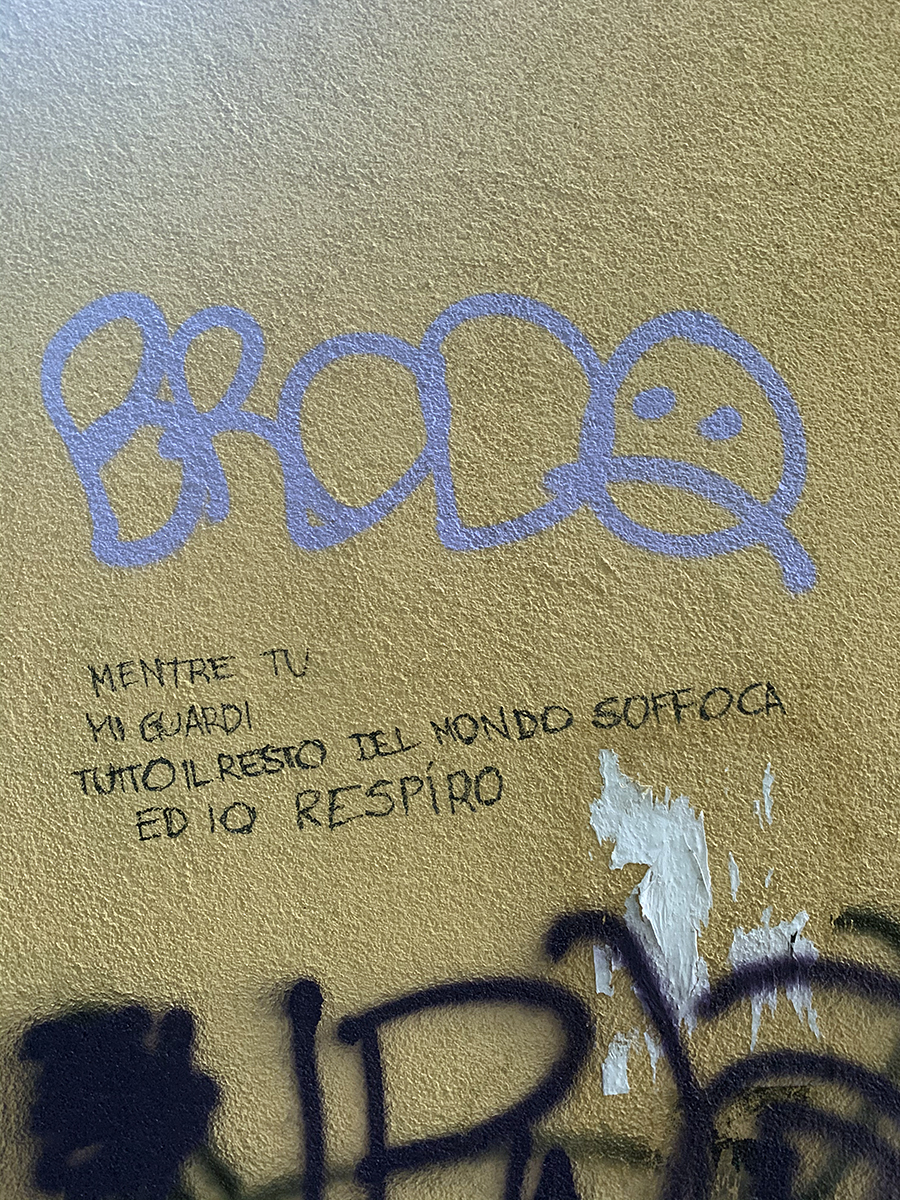 BRODO
MENTRE TU
MI GUARDI
TUTTO IL RESTO DEL MONDO SOFFOCA
ED IO RESPÍRO